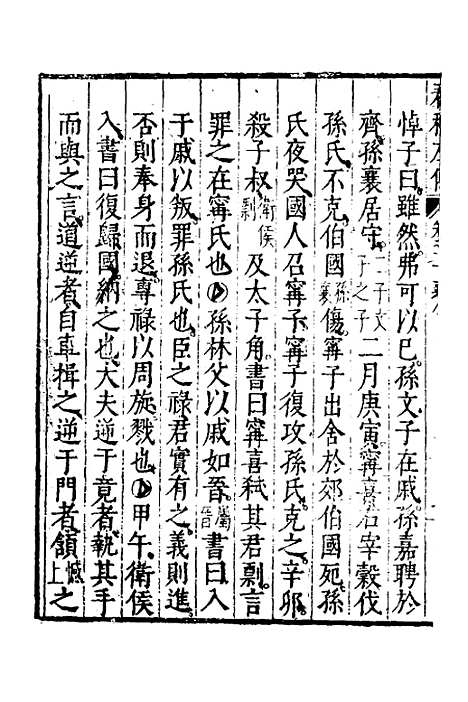 悼子曰雖然弗可以已孫文子在戚孫嘉聘於
齊孫襄居守二子文子之子二月庚寅甯喜右宰穀伐
孫氏不克伯國孫襄傷甯子出舍於郊伯國死孫
氏夜哭國人召甯子甯子復攻孫氏克之辛卯
殺子叔衛侯剽及太子角書曰甯喜弒其君剽言
罪之在甯氏也孫林父以戚如晉屬晉書曰入
于戚以叛罪孫氏也臣之祿君實有之義則進
否則奉身而退專祿以周旋戮也甲午衛侯
入書曰復歸國納之也大夫逆于竟者執其手
而與之言道逆者自車揖之逆于門者頷憾上之